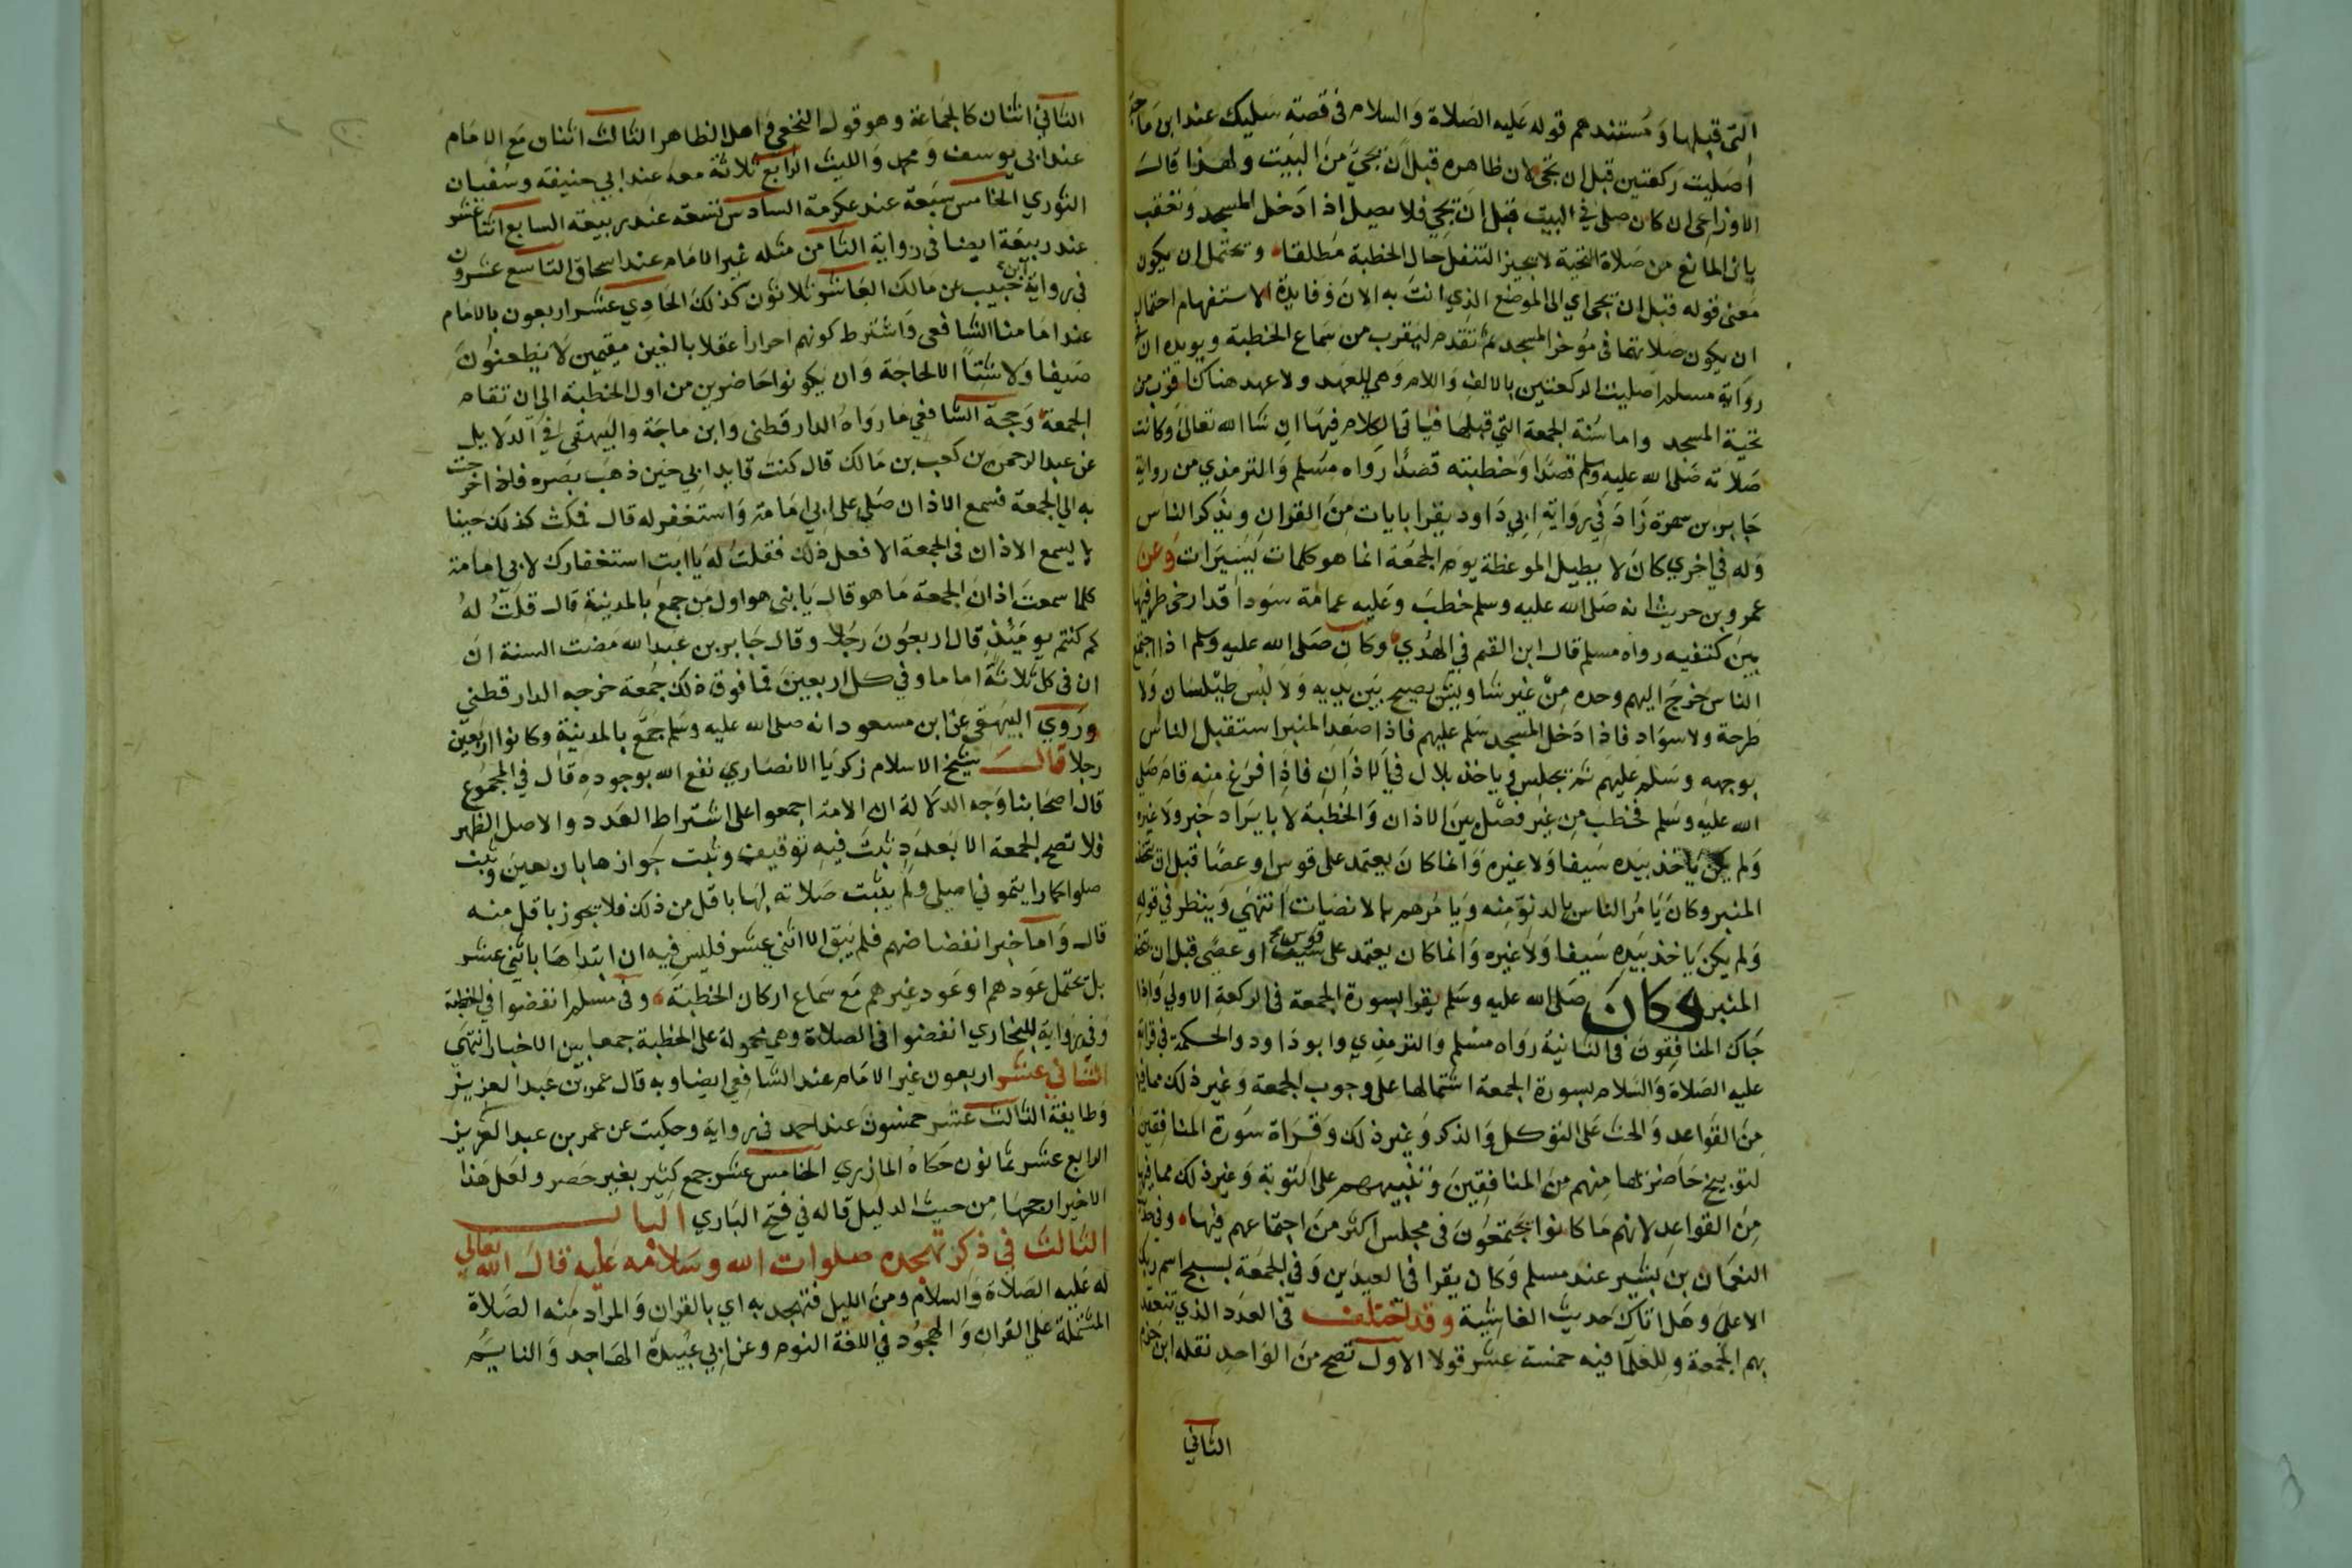 التى قبلها ومستندهم قوله عليه الصلاة والسلام فى قصة سليك عند ابن ماجة
أصليت ركعتين قبل ان تجى لان ظاهره قبل أن تجئ من البيت ولهذا قال
الاوزاعى ان كان صلى في البيت قبل ان يجي فلا يصلى اذا دخل المسجد وتعقب
بان المانع من صلاة التحية لا يجيز التنفل حال الخطبة مطلقا وتحتمل ان يكون
معنى قوله قبل ان تجى اي الى الموضع الذي انت به الان وفايدة الاستفهام احتمال
ان يكون صلاتهما فى مؤخر المسجد ثم تقدم ليقرب من سماع الخطبة ويويده ان
رواية مسلم اصليت الركعتين بالالف واللام وهى للعهد ولا عهد هناك اقرب من
تحية المسجد واما سنة الجمعة التي قبلها فياتى الكلام فيها ان شا الله تعالى وكانت
صلاته صلى الله عليه وسلم قصدا وخطبته قصدا رواه مسلم والترمذي من رواية
جابر بن سمرة زاد في رواية ابي داود يقرا بايات من القران ويذكر الناس
وله في اخري كان لا يطيل الموعظة يوم الجمعة انما هو كلمات يسيرات وعن
عمرو بن حريث انه صلى الله عليه وسلم خطب وعليه عمامة سودا قد ارخى طرفيها
بين كتفيه رواه مسلم قال ابن القيم في الهدي وكان صلى الله عليه وسلم اذا اجتمع
الناس خرج اليهم وحده من غير شاويش يصيح بين يديه ولا لبس طيلسان ولا
طرحة ولا سواد فاذا دخل المسجد سلم عليهم فاذا صعد المنبر استقبل الناس
بوجهه وسلم عليهم ثم يجلس وياخذ بلال في الاذان فاذا فرغ منه قام صلى
الله عليه وسلم فخطب من غير فصل بين الاذان والخطبة لا بايراد خبر ولا غيره
ولم يكن ياخذ بيده سيفا ولا غيره وانما كان يعتمد على قوس او عصا قبل ان يتخذ
المنبر وكان يامر الناس بالدنو منه ويامرهم بالانصات انتهى وينظر في قوله
ولم يكن ياخذ بيده سيفا ولا غيره وانما كان يعتمد على سيف قوس او عصى قبل ان يتخذ
المنبر وكان صلى الله عليه وسلم يقرا بسورة الجمعة فى الركعة الاولي واذا
جاك المنافقون فى الثانية رواه مسلم والترمذي وابو داود والحكمة في قراة
عليه الصلاة والسلام بسورة الجمعة اشتمالها على وجوب الجمعة وغير ذلك مما فيها
من القواعد والحث على التوكل والذكر وغير ذلك وقراة سورة المنافقين
لتوبيخ حاضريها منهم من المنافقين وتنبيههم على التوبة وغير ذلك مما فيها
من القواعد لانهم ما كانوا يجتمعون فى مجلس اكثر من اجتماعهم فيها وفى
النعمان بن بشير عند مسلم وكان يقرا فى العيدين وفي الجمعة بسبح اسم ربك
الاعلى وهل اتاك حديث الغاشية وقد اختلف فى العدد الذي تنعقد
بهم الجمعة وللعلما فيه خمسة عشر قولا الاول تصح من الواحد نقله ابن حزم
الثاني
الثاني اثنان كالجماعة وهو قول النخعي واهل الظاهر الثالث اثنان مع الامام
عند ابي يوسف ومحمد والليث الرابع ثلاثة معه عند ابي حنيفة وسفيان
الثوري الخامس سبعة عند عكرمة السادس تسعة عند ربيعة السابع اثنا عشر
عند ربيعة ايضا فى رواية الثامن مثله غير الامام عند اسحاق التاسع عشرون
فى رواية ابن حبيب عن مالك العاشر ثلاثون كذلك الحادي عشر اربعون بالامام
عند امامنا الشافعى واشترط كونهم احرارا عقلا بالغين مقيمين لا يظعنون
صيفا ولا شتاً الا لحاجة وان يكونوا حاضرين من اول الخطبة الى ان تقام
الجمعة وحجة الشافعي ما رواه الدارقطنى وابن ماجة والبيهقى في الدلايل
عن عبد الرحمن بن كعب بن مالك قال كنت قايد ابي حين ذهب بصره فاذا خرجت
به الي الجمعة فسمع الاذان صلي على ابي امامة واستغفر له قال فمكث كذلك حينا
لا يسمع الاذان فى الجمعة الا فعل ذلك فقلت له يا ابت استغفارك لابي امامة
كلما سمعت اذان الجمعة ما هو قال يا بنى هو اول من جمع بالمدينة قال قلت له
كم كنتم يومئذ قال اربعون رجلا وقال جابر بن عبد الله مضت السنة ان
ان فى كل ثلاثة اماما وفي كل اربعين فما فوق ذلك جمعة خرجه الدارقطني
وروي البيهقى عن ابن مسعود انه صلى الله عليه وسلم جمع بالمدينة وكانوا اربعين
رجلا قال شيخ الاسلام زكريا الانصاري نفع الله بوجوده قال في المجموع
قال اصحابنا وجه الدلالة ان الامة اجمعوا على اشتراط العدد والاصل الظهر
فلا تصح الجمعة الا بعدد ثبت فيه توقيف وثبت جوازها باربعين وثبت
صلوا كما رايتموني اصلي ولم يثبت صلاته لها باقل من ذلك فلا يجوز باقل منه
قال واما خبر انفضاضهم فلم يبق الا اثنى عشر فليس فيه ان ابتداها باثني عشر
بل تحتمل عودهم او عود غيرهم مع سماع اركان الخطبة وفى مسلم انفضوا في الخطبة
وفى رواية للبخاري انفضوا فى الصلاة وهى محمولة على الخطبة جمعا بين الاخبار انتهى
الثاني عشر اربعون غير الامام عند الشافعى ايضا وبه قال عمر بن عبد العزيز
وطايفة الثالث عشر خمسون عند احمد فى رواية وحكيت عن عمر بن عبد العزيز
الرابع عشر ثمانون حكاه المازري الخامس عشر جمع كثير بغير حصر ولعل هذا
الاخير ارجحها من حيث الدليل قاله في فتح الباري الباب
الثالث في ذكر تهجده صلوات الله وسلامه عليه قال الله تعالى
له عليه الصلاة والسلام ومن الليل فتهجد به اي بالقران والمراد منه الصلاة
المشتملة على القران والهجود في اللغة النوم وعن ابي عبيدة الهاجد والنايم